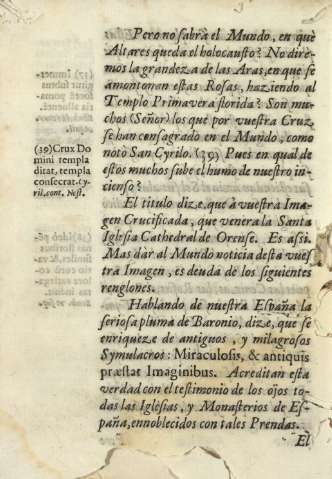 Pero no sabra el Mundo, en què
Altares queda el holocausto? No dire-
mos la grandeza de las Aras, en que se
amontonan estas Rosas, haziendo al
Templo Primavera florida? Son mu-
chos (Señor) los que por vuestra Cruz
se han consagrado en el Mundo, como
notò San Cyrilo. (39) Pues en qual de
estos muchos sube el humo de nuestro in-
cienso?
(39) Crux Do
mini templa
dicat, templa
consecrat. Cy-
ril. cont. Nest.
El titulo dize, que à vuestra Ima-
gen Crucificada, que venera la Santa
Iglesia Cathedral de Orense. Es assi.
Mas dar al Mundo noticia desta vues-
tra Imagen, es deuda de los siguientes
renglones.
Hablando de nuestra España la
seriosa pluma de Baronio, dize, que se
enriqueze de antiguos, y milagrosos
Symulacros: Miraculosis, & antiquis
præstat Imaginibus. Acreditan esta
verdad con el testimonio de los ojos to-
das las Iglesias, y Monasterios de Es-
paña, ennoblecidos con tales Prendas.
El